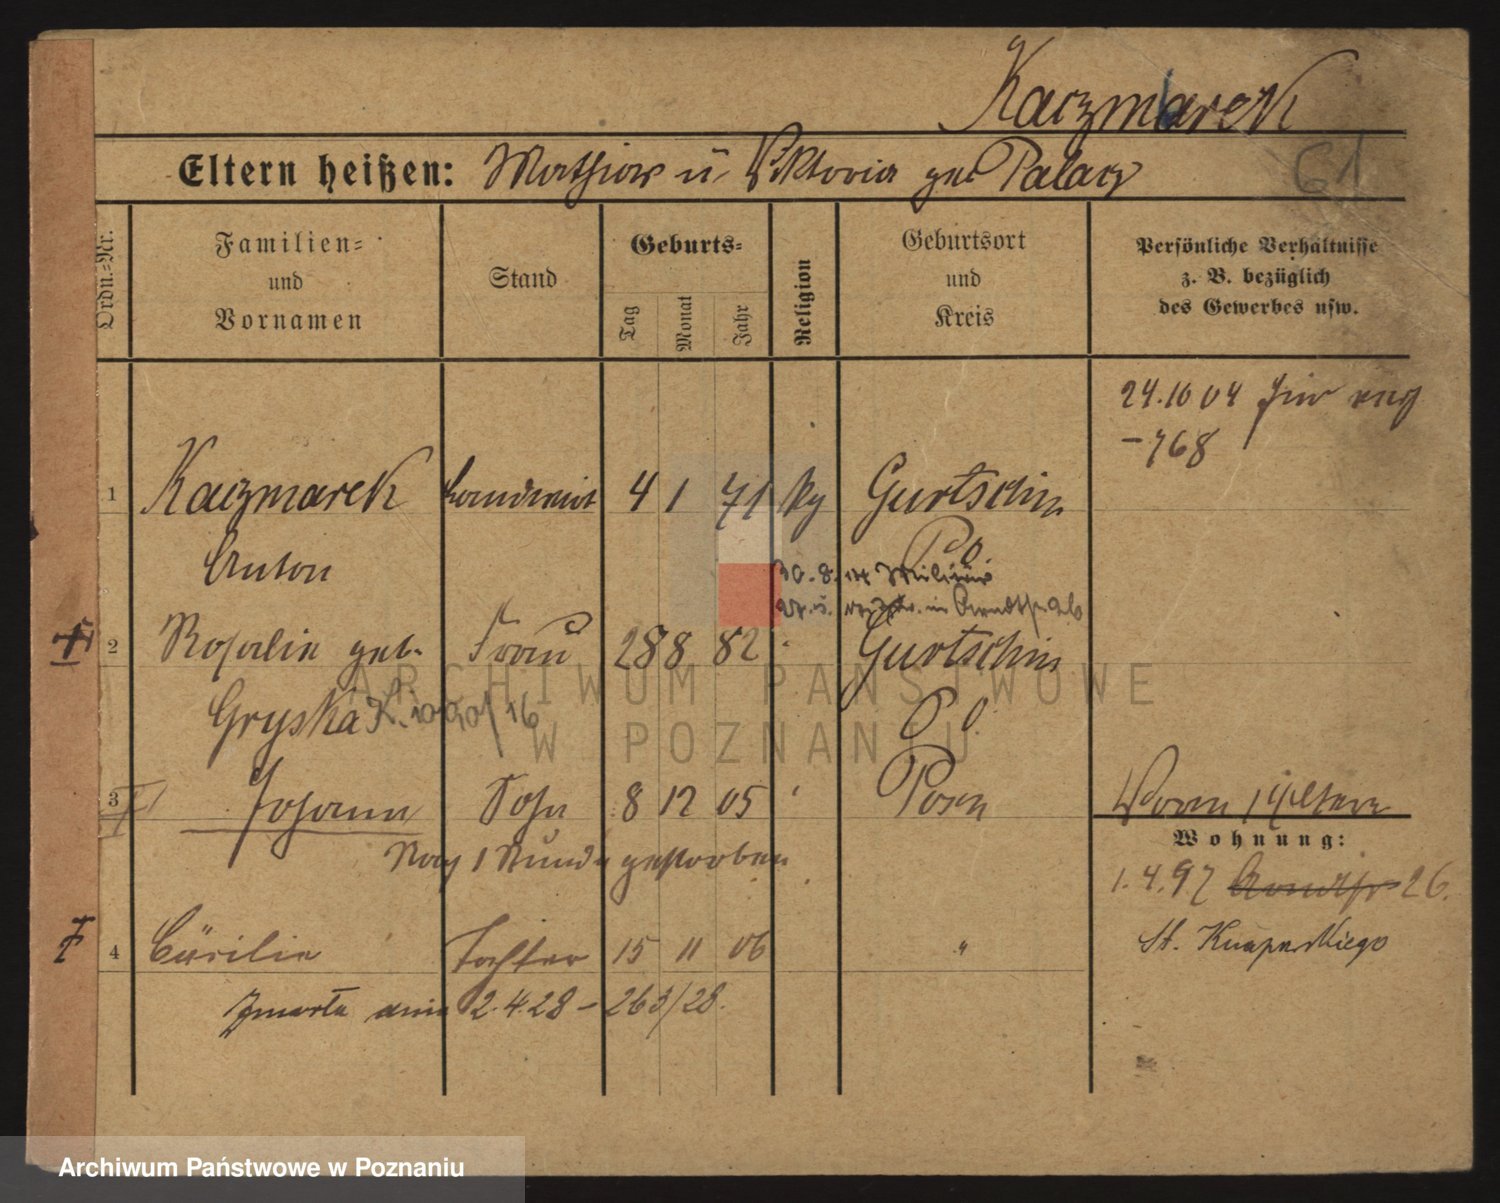 Kaczmarek
Eltern heißen: Mathias u. Viktoria geb Palacz
61
Ordn.-Nr.
Familien-
und
Vornamen
Stand
Geburts-
Tag
Monat
Jahr
Religion
Geburtsort
und
Kreis
Persönliche Verhältnisse
z. B. bezüglich
des Gewerbes usw.
24.10 04
-768
1 Kaczmarek Landwirt 4 1 71 kg Gurtschin
Anton Po.
30.8. Militär
2 Rosalie geb. Frau 28 8 82 Gurtschin
Gryska K. /16 Po.
3 Johann Sohn 8 12 05 Posen
Nach 1 Stunde gestorben
Wohnung:
1.4.97 Arndtstr 26.
St. Knapowskiego
4 Cäcilie Tochter 15 11 06 "
Zmarła dnia 2.4.28 - 263/28.
ARCHIWUM PAŃSTWOWE
W POZNANIU
Archiwum Państwowe w Poznaniu